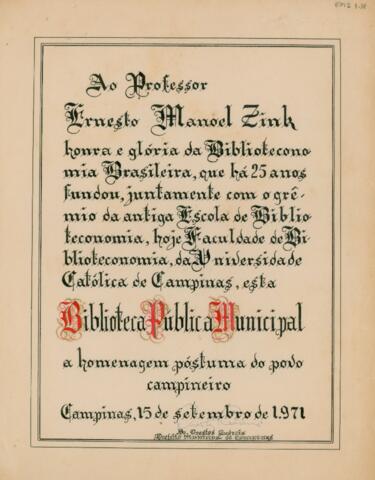 Ao Professor
Ernesto Manoel Zink
honra e glória da Bibliotecono
mia Brasileira, que há 25 anos
fundou, juntamente com o grê-
mio da antiga Escola de Biblio
teconomia, hoje Faculdade de Bi-
blioteconomia, da Universidade
Católica de Campinas, esta
Biblioteca Pública Municipal
a homenagem póstuma do povo
campineiro
Campinas, 15 de setembro de 1.971
Dr. Orestes Quércia
Prefeito Municipal de Campinas